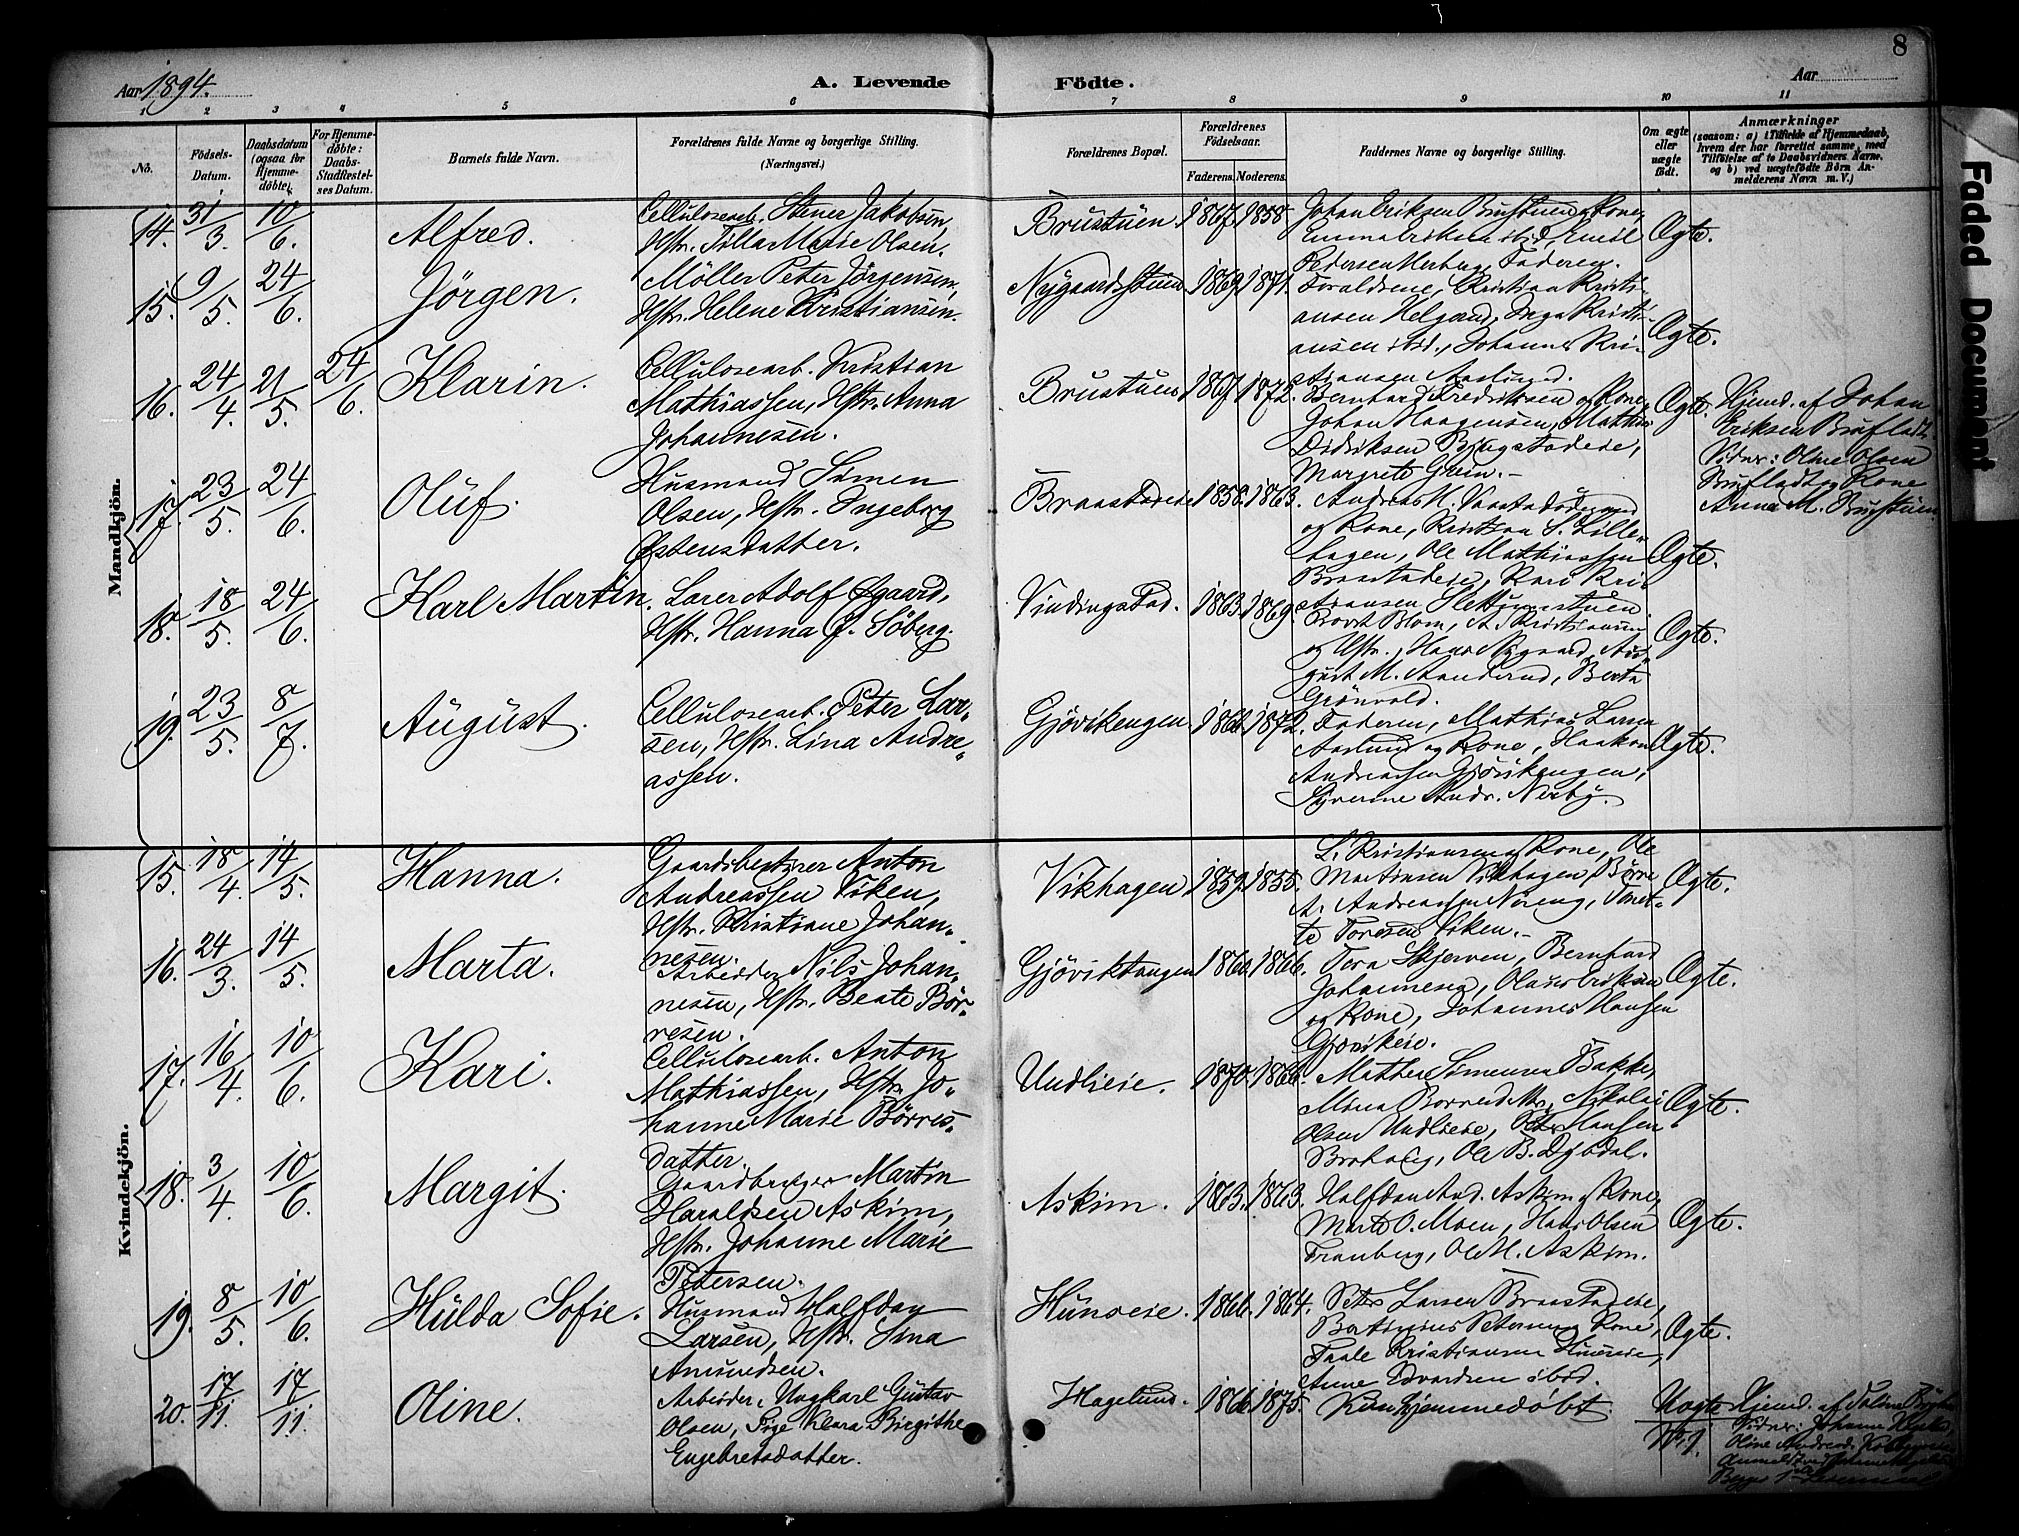 8
Aar 1894.
A. Levende
Födte.
Aar
1 2 3 4 5 6 7 8 9 10 11
No.
Födsels-
Datum.
Daabsdatum
(ogsaa for
Hjemme-
döbte).
For Hjemme-
döbte:
Daabs-
Stadfæstel-
ses Datum.
Barnets fulde Navn.
Forældrenes fulde Navne og borgerlige Stilling.
(Næringsvei.)
Forældrenes Bopæl.
Forældrenes
Födselsaar.
Faderens.
Moderens.
Faddernes Navne og borgerlige Stilling.
Om ægte
eller
uægte
født.
Anmærkninger
(saasom: a) i Tilfælde af Hjemmedaab,
hvem der har forrettet samme, med
Tilföielse af to Daabsvidners Navne,
og b) ved uægtefödte Börn An-
melderens Navn m. V.)
Faded Document
Mandkjön.
14. 31/3. 10/6. Alfred.
Cellulosearb. Stener Jakobsen,
Hstr. Tilla Marie Olsen.
Brustuen 1867. 1858.
Johan Eriksen Brustuen og Kone,
Emma Eriksen ibid, Emil
Pedersen Faderen.
Ægte.
15. 9/5. 24/6. Jörgen.
Möller Peter Jörgensen,
Hstr. Helene Kristiansen.
Nygaardsstuen 1869. 1871.
Foraldrene, Kristian Kristi-
ansen Helgerud, Inga Kristi-
ansen ibid., Johannes Kri-
stiansen Aaslund.
Ægte.
16. 24/4. 21/5. 24/6. Klarin.
Cellulosearb. Kristian
Mathiassen, Hstr. Anna
Johannesen.
Brustuen 1867. 1872.
Bernhard Fredriksen og Kone,
Johan Haagensen, Mathias
Didriksen Bergstadeie,
Margrete
Ægte.
Hjemd. af Johan
Eriksen Brufladt.
Vidner: Oline Olsen
Brufladt og Kone
Anna M. Brustuen.
17. 23/5. 24/6. Oluf.
Husmand Simen
Olsen, Hstr. Ingeborg
Østensdatter.
Braastadeie 1858. 1863.
Andreas M.
og Kone, Kristian S. Lille-
hagen, Ole Mathiassen
Braastadeie, Kari Kri-
stiansen
Ægte.
18. 18/5. 24/6. Karl Martin.
Lærer Adolf Øgaard,
Hstr. Hanna J. Söberg.
Vindingstad. 1863. 1869.
Blom, A. Kristiansen
og Hstr., Hans Nygaard, Au-
gust M. Aanderud, Berta
Grönvold.
Ægte.
19. 23/5. 8/7. August.
Cellulosearb. Peter Lar-
sen, Hstr. Lina Andre-
assen.
Gjövikengen. 1872.
Faderen, Mathias Larsen
Aaslund og Kone, Haakon
Andreassen Gjövikengen,
Syverine Andr. Nerby.
Ægte.
Kvindekjön.
15. 18/4. 14/5. Hanna.
Gaardsbestyrer Anton
Andreassen Viken,
Hstr. Kristiane Johan-
nesen.
Vikhagen 1859. 1855.
L. Kristiansen og Kone, Ole
Martinsen Vikhagen, Börre
A. Andreassen Noreng, Tonet-
te Toresen Viken.
Ægte.
16. 24/3. 14/5. Marta.
Arbeider Nils Johan-
nesen, Hstr. Beate Bör-
resen.
Gjöviktangen 1866.
Tora Skjerven, Bernhard
Johannesen, Olaus Eriksen
og Kone, Johannes Hansen
Gjövikeie.
Ægte.
17. 16/4. 10/6. Kari.
Cellulosearb. Anton
Mathiassen, Hstr. Jo-
hanne Marie Börres-
datter.
Undlieie. 1870. 1866.
Mathea Simensen Bakke,
Mina Nikolai
Olsen Undlieie, Hansen
Brohaug, Ole B. Dybdal.
Ægte.
18. 3/4. 10/6. Margit.
Gaardbruger Martin
Haraldsen Askim,
Hstr. Johanne Marie
Petersen.
Askim. 1863. 1863.
Halfdan And. Askim og Kone,
Marte O. Moen, Hans Olsen
Tranberg, Ole M. Askim.
Ægte.
19. 8/5. 10/6. Hulda Sofie.
Husmand Halfdan
Larsen, Hstr. Sina
Amundsen.
Hunseie. 1866. 1864.
Peter Larsen Braastadeie,
Bertinius Petersen og Kone,
Paale Kristiansen Hunseie,
Anne Edvardsen ibid.
Ægte.
20. 17/11. 17/11. Oline.
Arbeider, Ungkarl Gustav
Olsen, Pige Klara Birgithe
Engebretsdatter.
Hagelund. 1866. 1875.
Kun hjemmedöbt.
Uægte
Nr. 1.
Hjemd. af
Vidner: Johanne
Oline